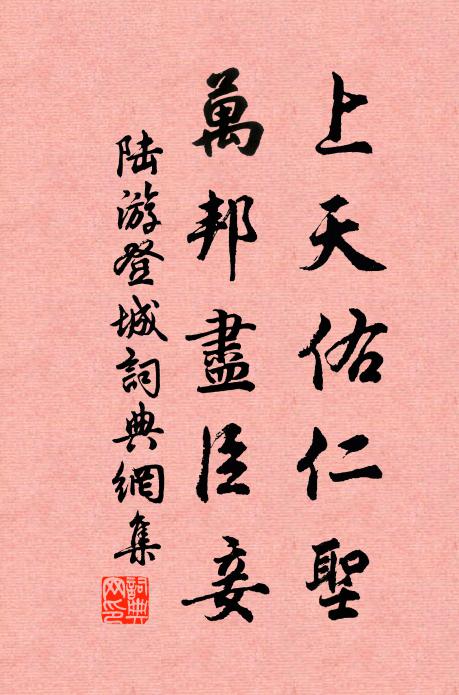 上天佑仁聖
萬邦盡臣妾
陸游登城詞典網集
詞典网印